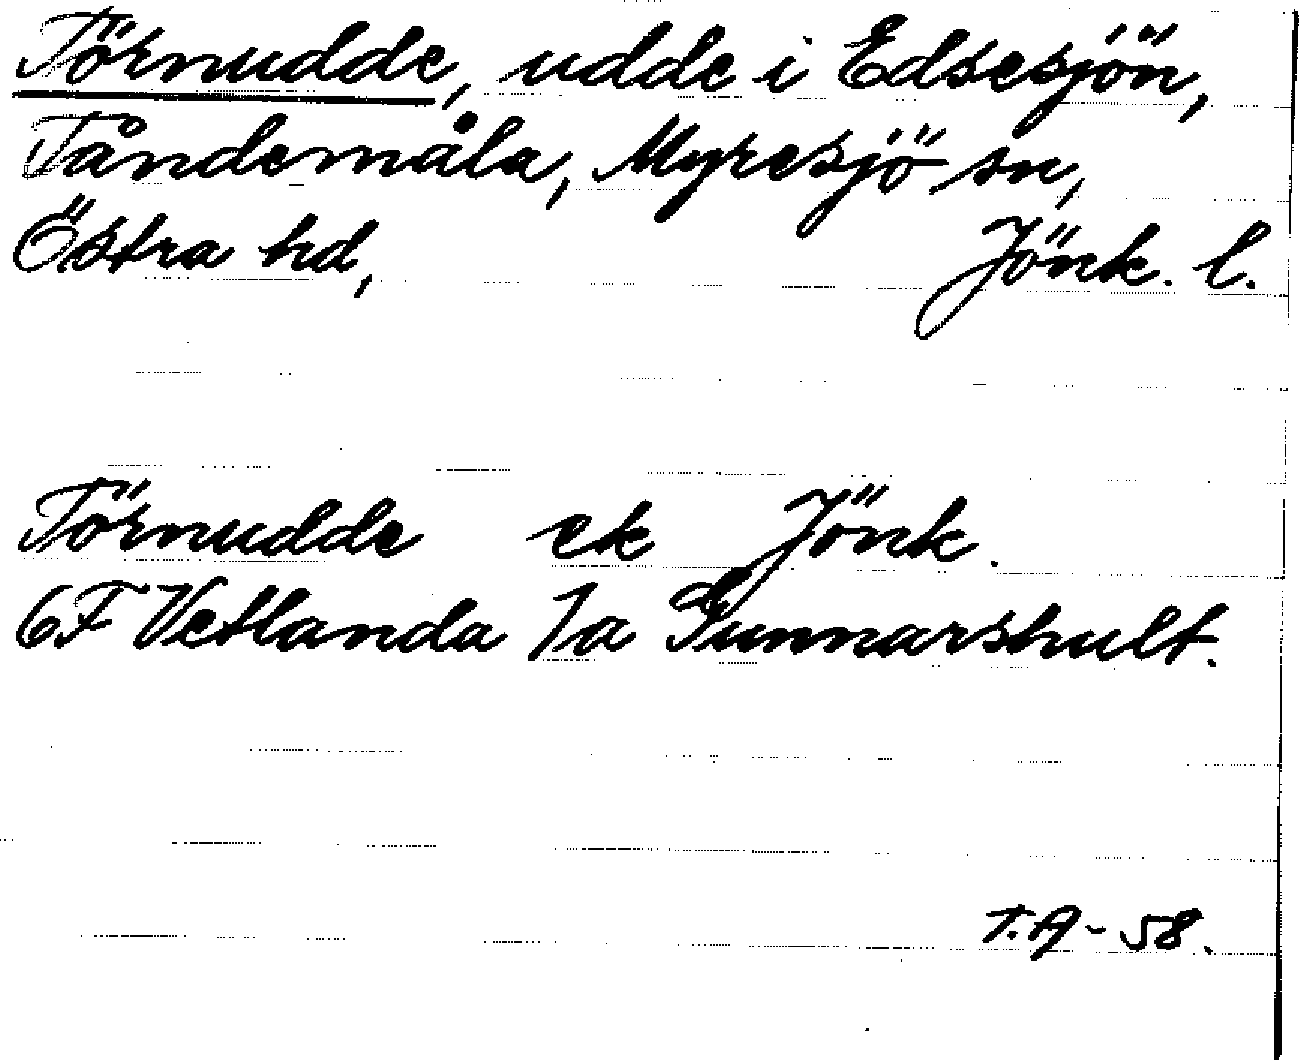 Törnudde, udde i Edsesjön,
Tåndemåla, Myresjö sn,
Östra hd, Jönk. l.
Törnudde ek Jönk.
6F Vetlanda 1a Gunnarshult.
T.A-58.